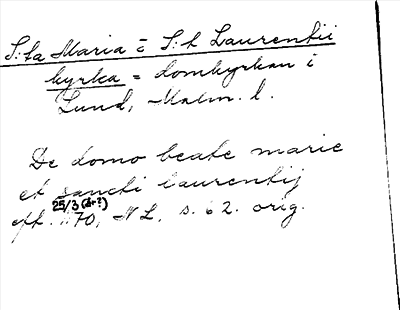 S:ta Maria = S:t Laurentii
kyrka = domkyrkan i
Lund, Malm. l.
De domo beate marie
et sancti laurentij
25/3 (år?)
eft. 1170, N L, s. 62. orig.